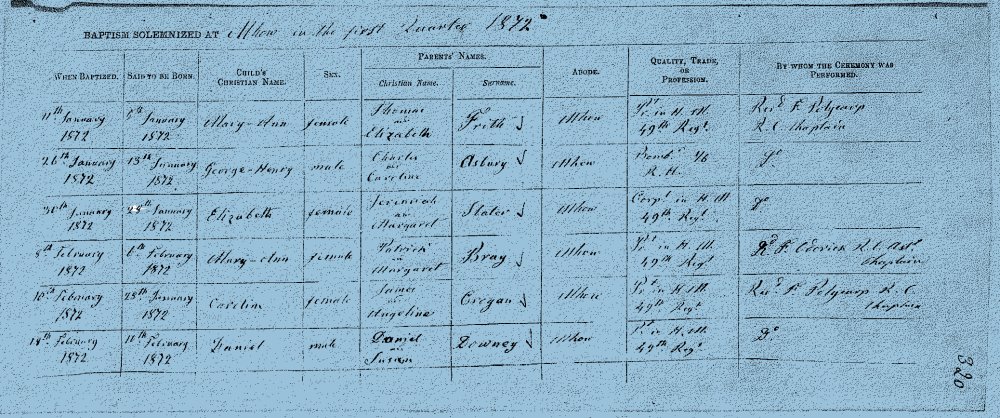 BAPTISM SOLEMNIZED AT Mhow in the first Quarter 1872
WHEN BAPTIZED. SAID TO BE BORN. CHILD'S CHRISTIAN NAME. SEX. PARENTS' NAMES. Christian Name. Surname. ABODE. QUALITY, TRADE, OR PROFESSION. BY WHOM THE CEREMONY WAS PERFORMED.
11th January 1872 5th January 1872 Mary-Ann female Thomas and Elizabeth Frith Mhow Pt in H. M. 49th Regt. Revd F. Polycarp R. C. Chaplain
26th January 1872 13th January 1872 George-Henry male Charles and Caroline Asbury Mhow Bombr R. H. Do
30th January 1872 January 1872 Elizabeth female Jeremiah and Margaret Slater Mhow Corpl in H. M 49th Regt. Do
February 1872 6th February 1872 Mary-Ann female Patrick and Margaret Bray Mhow Pt in H. M. 49th Regt F. R. C. Asst Chaplain
10th February 1872 28th January 1872 Caroline female James and Angelina Cregan Mhow Pt in H. M. 49th Regt Revd F. Polycarp R. C. Chaplain
18th February 1872 10th February 1872 Daniel male Daniel and Susan Downey Mhow Pt in H. M. 49th Regt Do
320